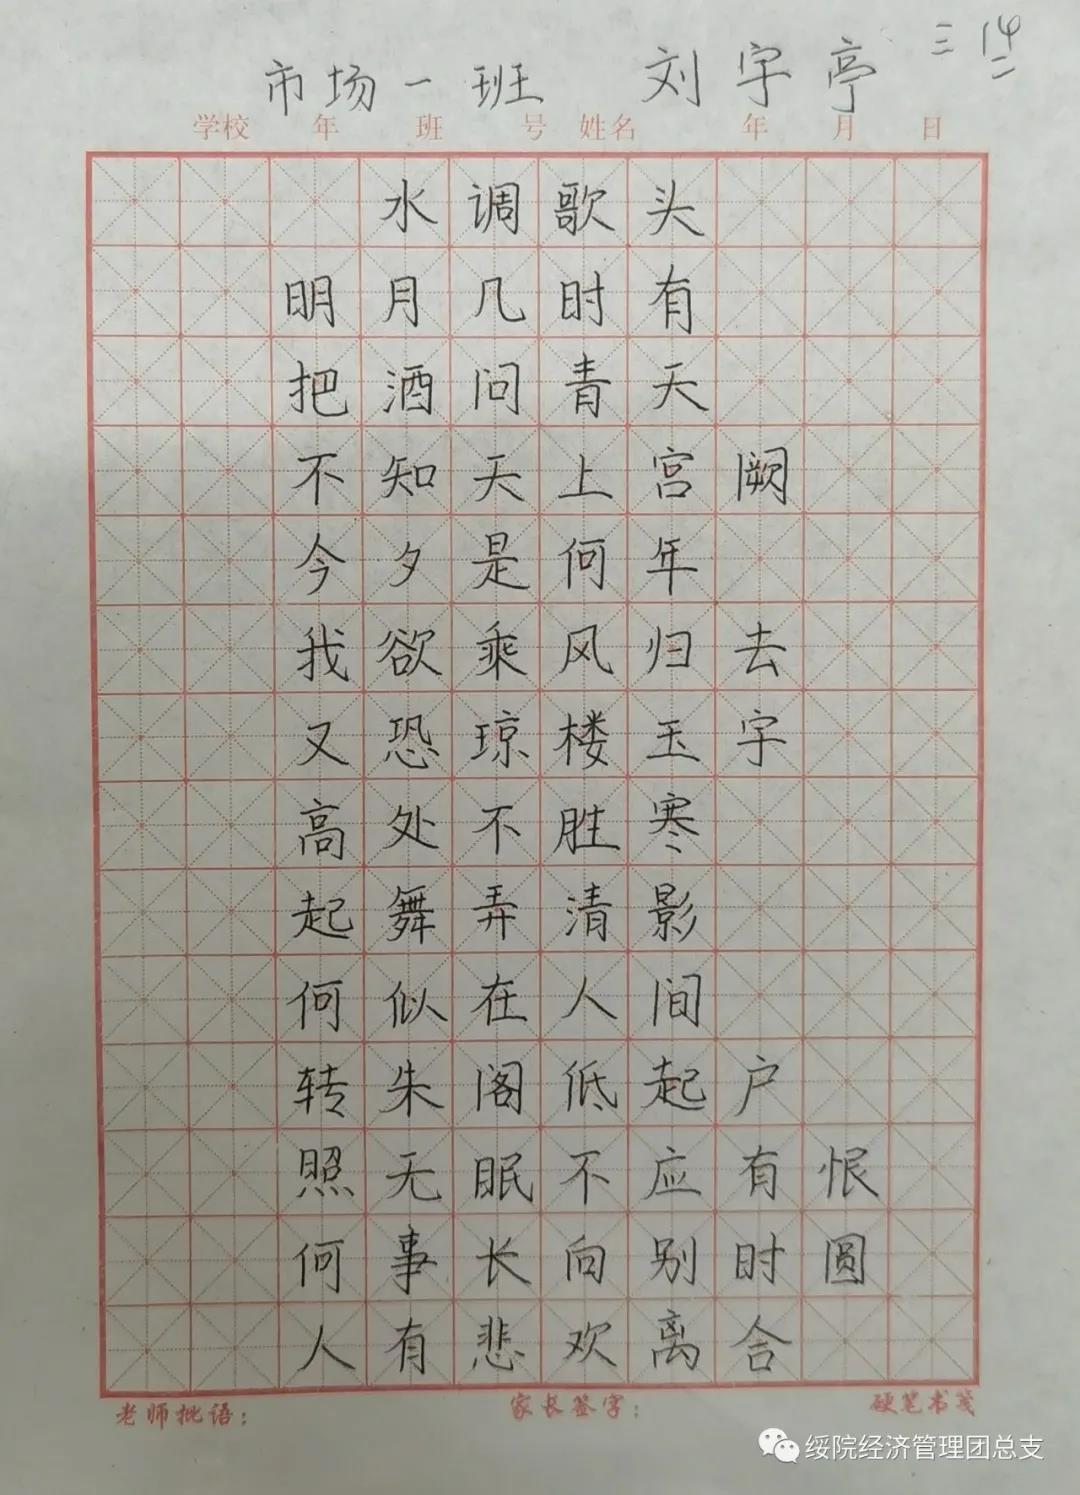 三 14
二
市场一班 刘宇亭
学校 年 班 号 姓名 年 月 日
水调歌头
明月几时有
把酒问青天
不知天上宫阙
今夕是何年
我欲乘风归去
又恐琼楼玉宇
高处不胜寒
起舞弄清影
何似在人间
转朱阁低起户
照无眠不应有恨
何事长向别时圆
人有悲欢离合
老师批语: 家长签字: 硬笔书笺
绥院经济管理团总支